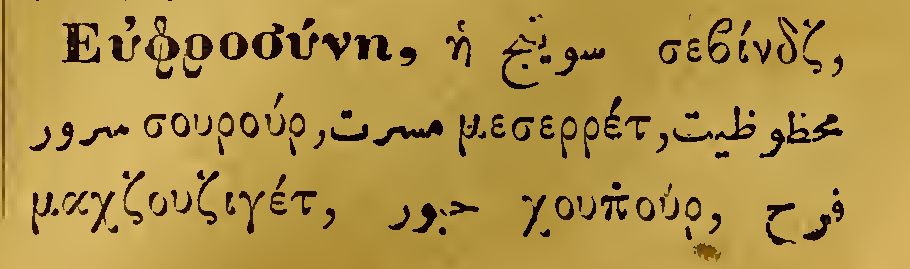 Εὐφροσύνη, ἡ سوينج σεβίνδζ,
سرور σουρούρ, مسرت μεσερρέτ, محظوظيت
μαχζουζιγέτ, حبور χουπ̇ούρ, فرح